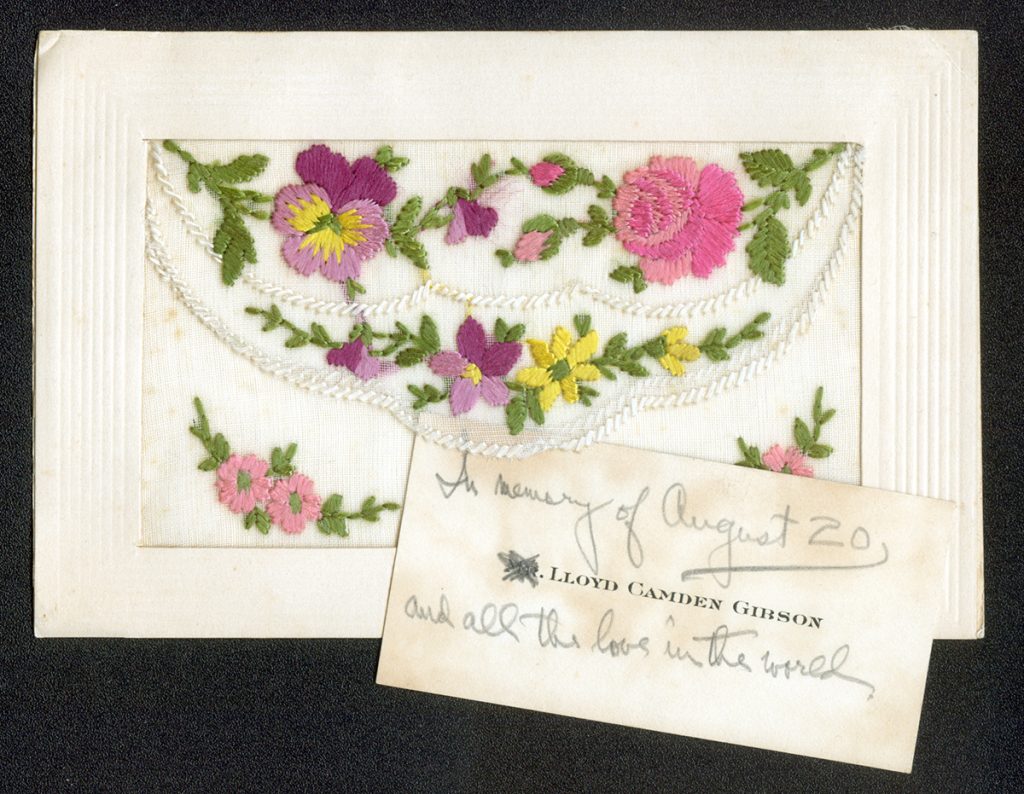 In memory of August 20,
. LLOYD CAMDEN GIBSON
and all the love in the world.